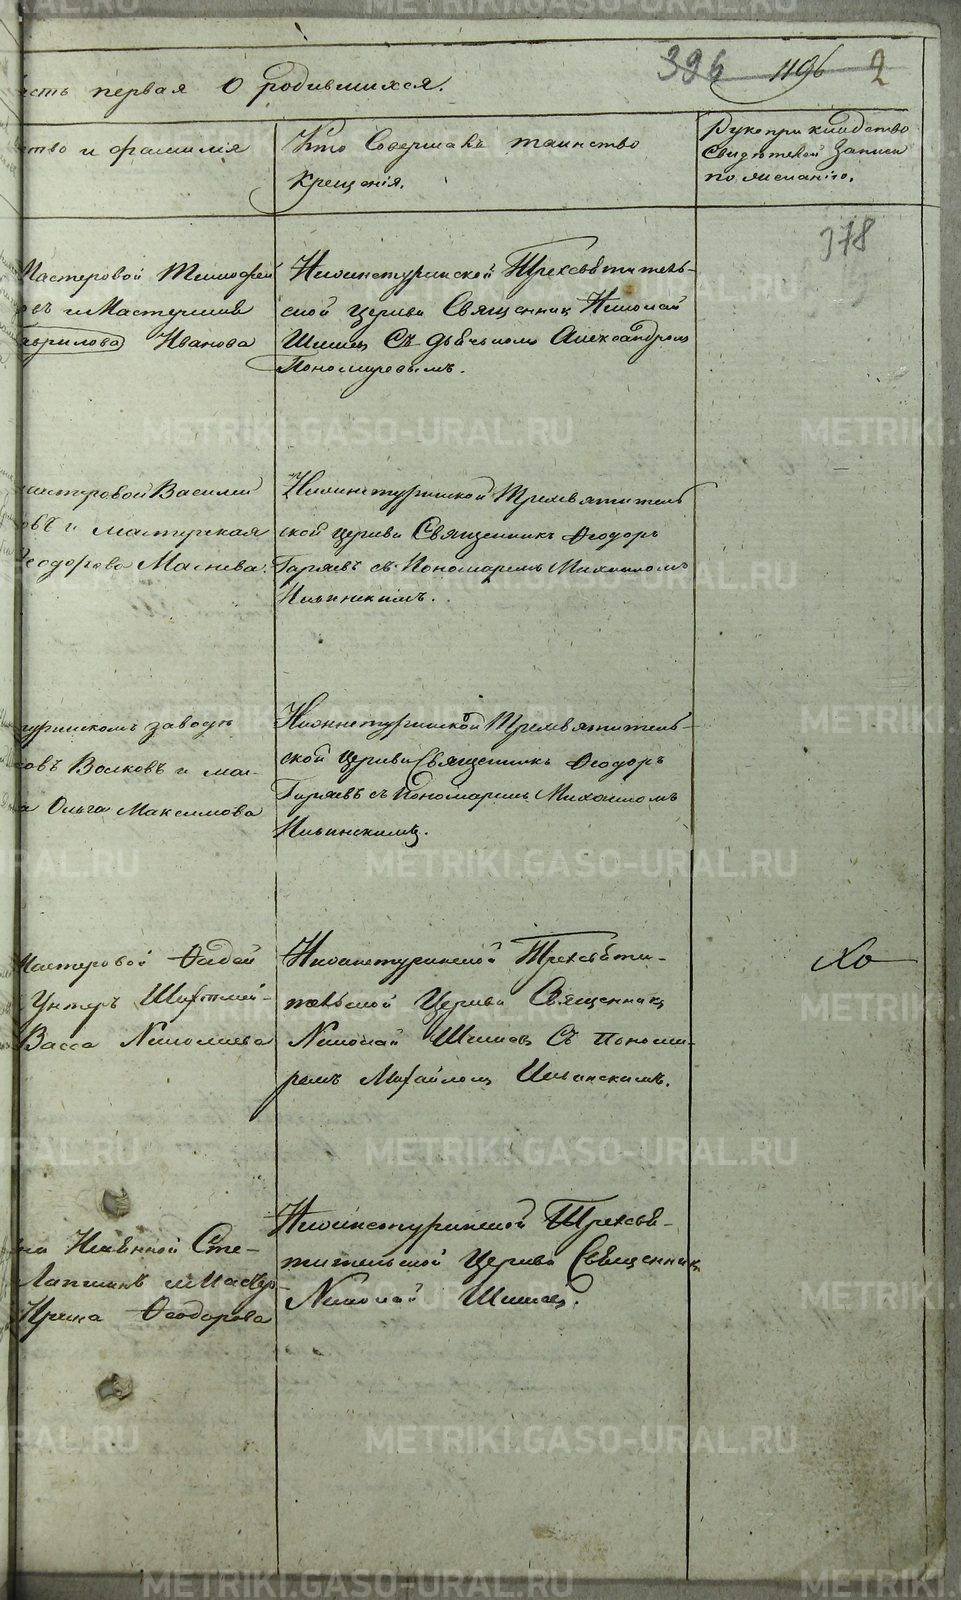 396 1196 2
первая О родившихся.
и фамилія
Кто Совершалъ таинство
Крещенія.
Рукоприкладство
Свидѣтелей Записи
по желанію.
378
Мастеровой Тимофей
и Мастерская
Иванова
Нижнетуринской Трехсвятитель-
ской церкви Священник Николай
Шишев Съ дьячкомъ Александромъ
Пономаревымъ.
Василий
и мастерская
Нижнетуринской Трехсвятитель
ской церкви Священникъ Ѳеодоръ
Гаряевъ съ Пономаремъ Михаиломъ
Ильинскимъ.
заводѣ
Волковъ и мас-
а Ольга Максимова
Нижнетуринской Трехсвятитель-
ской церкви Священникъ Ѳеодоръ
Гаряевъ съ Пономаремъ Михаиломъ
Ильинскимъ.
Мастеровой Фадей
Унтеръ
Васса Николаева
Нижнетуринской Трехсвяти-
тельской Церкви Священникъ
Николай Шишев Съ Понома-
ремъ Михайломъ Ильинскимъ.
Сте-
Лапшинъ и Масте-
Ирина Ѳеодорова
Нижнетуринской Трехсвя-
тительской Церкви Священникъ
Николай Шишев.
METRIKI.GASO-URAL.RU